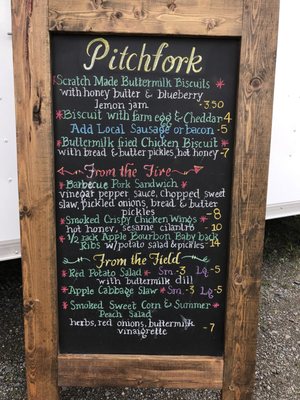 Pitchfork
*Scratch Made Buttermilk Biscuits
with honey butter & blueberry
lemon jam -3.50
*Biscuit with farm egg & Cheddar 4
Add Local Sausage or bacon -5
*Buttermilk fried Chicken Biscuit*
with bread & butter pickles, hot honey -7
From the Fire
*Barbecue Pork Sandwich*
vinegar pepper sauce, chopped sweet
slaw, pickled onions, bread & butter
pickles -8
*Smoked Crispy Chicken Wings*
hot honey, sesame cilantro -10
*½ rack Apple Bourbon Baby back
Ribs w/potato salad & pickles -14
From the Field
*Red Potato Salad* Sm. -3 Lg. -5
with buttermilk dill
*Apple Cabbage Slaw* Sm. -3 Lg. -5
*Smoked Sweet Corn & Summer*
Peach Salad
herbs, red onions, buttermilk -7
vinaigrette